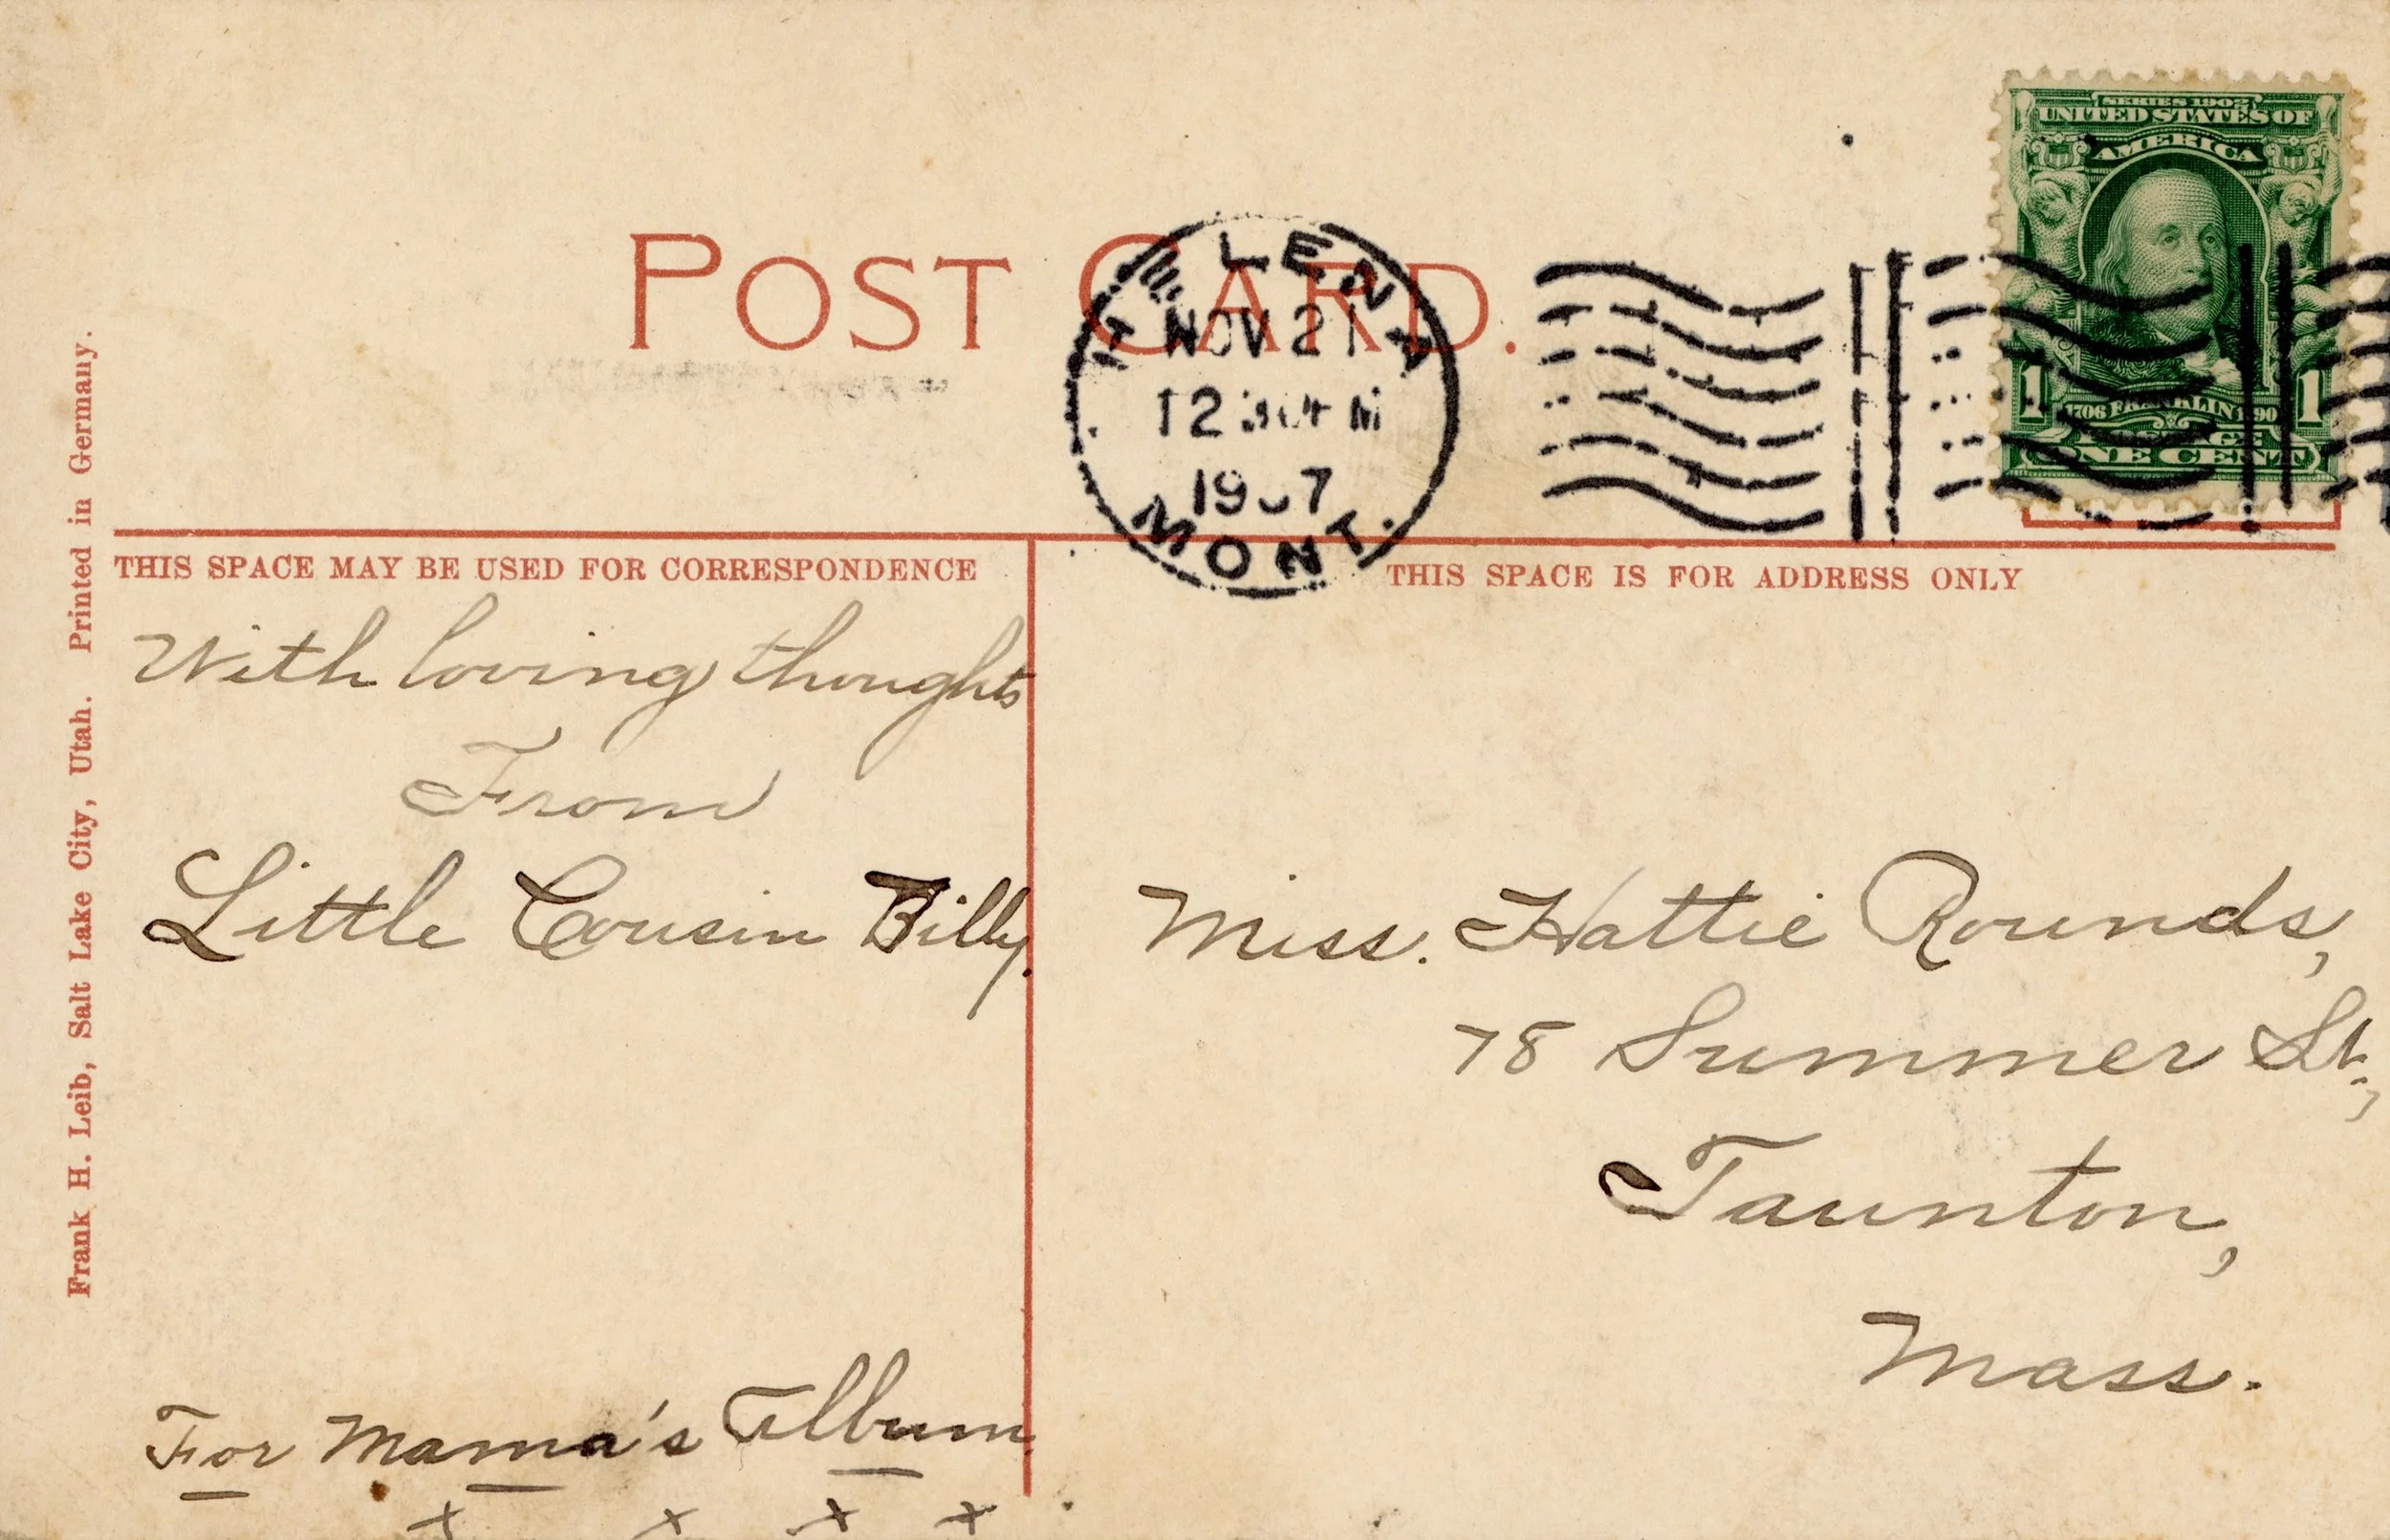 POST CARD.
HELENA
NOV 21
12 30 M
1907
MONT.
SERIES 1902
UNITED STATES OF
AMERICA
1 1706 FRANKLIN 1790 1
POSTAGE
ONE CENT
THIS SPACE MAY BE USED FOR CORRESPONDENCE
With loving thoughts
From
Little Cousin Billy.
For Mama's Album
x x x x
THIS SPACE IS FOR ADDRESS ONLY
Miss. Hattie Rounds,
78 Summer St.,
Taunton,
Mass.
Frank H. Leib, Salt Lake City, Utah. Printed in Germany.